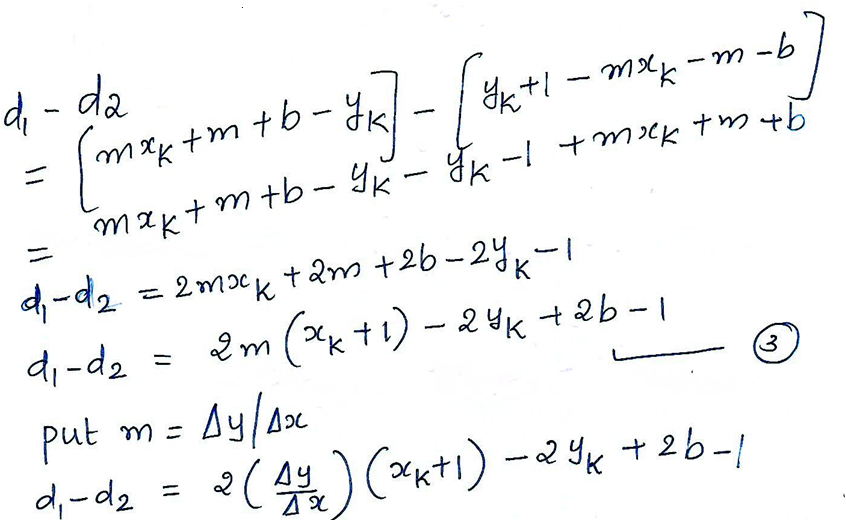 d₁ - d₂
= [mxₖ + m + b - yₖ] - [yₖ + 1 - mxₖ - m - b]
= mxₖ + m + b - yₖ - yₖ - 1 + mxₖ + m + b
d₁ - d₂ = 2mxₖ + 2m + 2b - 2yₖ - 1
d₁ - d₂ = 2m(xₖ + 1) - 2yₖ + 2b - 1 — ③
put m = Δy/Δx
d₁ - d₂ = 2(Δy/Δx)(xₖ+1) - 2yₖ + 2b - 1